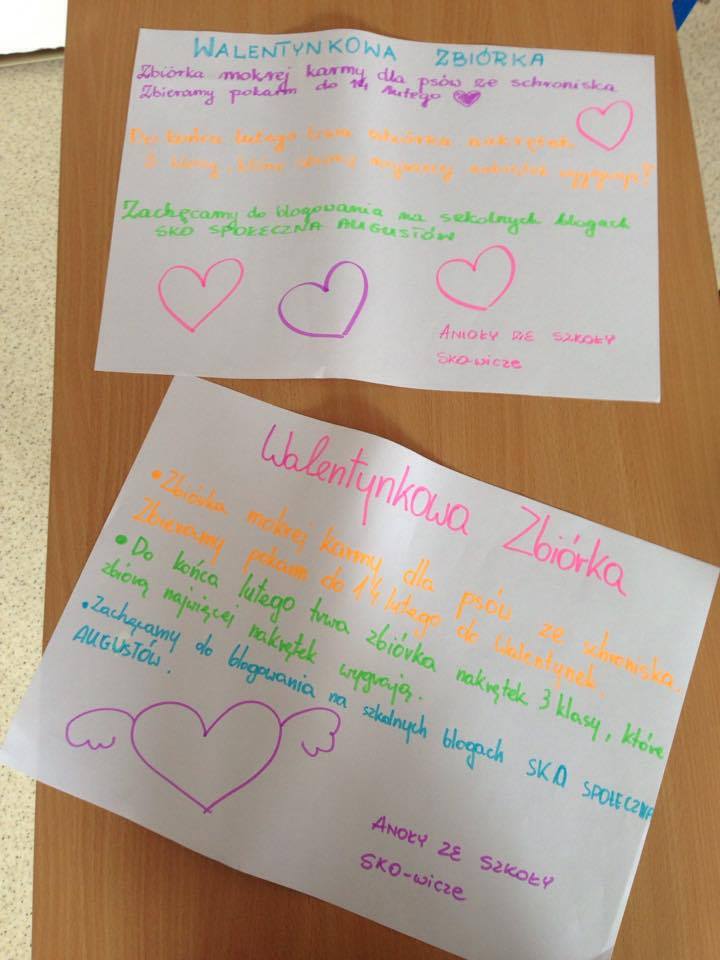 WALENTYNKOWA ZBIÓRKA
Zbiórka mokrej karmy dla psów ze schroniska
Zbieramy pokarm do 14 lutego
Do końca lutego trwa zbiórka nakrętek.
3 klasy, które zbiorą najwięcej nakrętek wygrywają!
Zachęcamy do blogowania na szkolnych blogach
SKO SPOŁECZNA AUGUSTÓW
ANIOŁY ZE SZKOŁY
SKO-wicze
Walentynkowa Zbiórka
• Zbiórka mokrej karmy dla psów ze schroniska.
Zbieramy pokarm do 14 lutego do Walentynek.
• Do końca lutego trwa zbiórka nakrętek 3 klasy, które
zbiorą najwięcej nakrętek wygrają.
• Zachęcamy do blogowania na szkolnych blogach SKO SPOŁECZNA
AUGUSTÓW.
ANOŁY ZE SZKOŁY
SKO-wicze